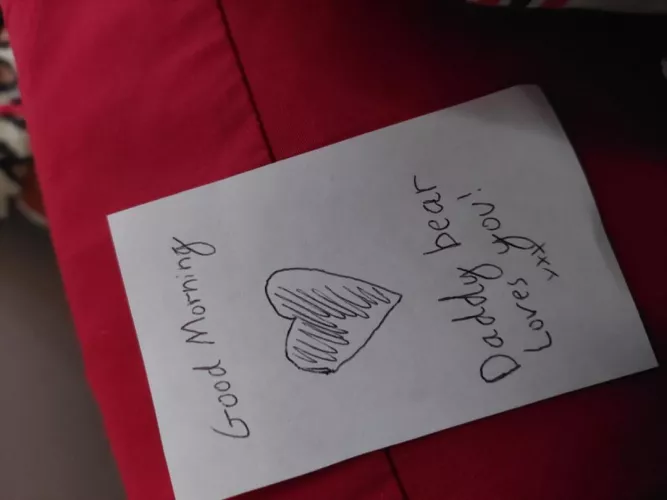 Good Morning
Daddy bear
Loves you!
xxx